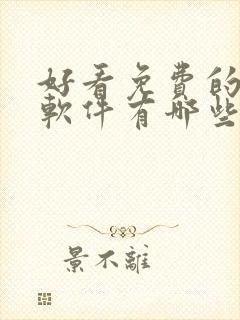 好看免費的
軟件有哪些
景不離